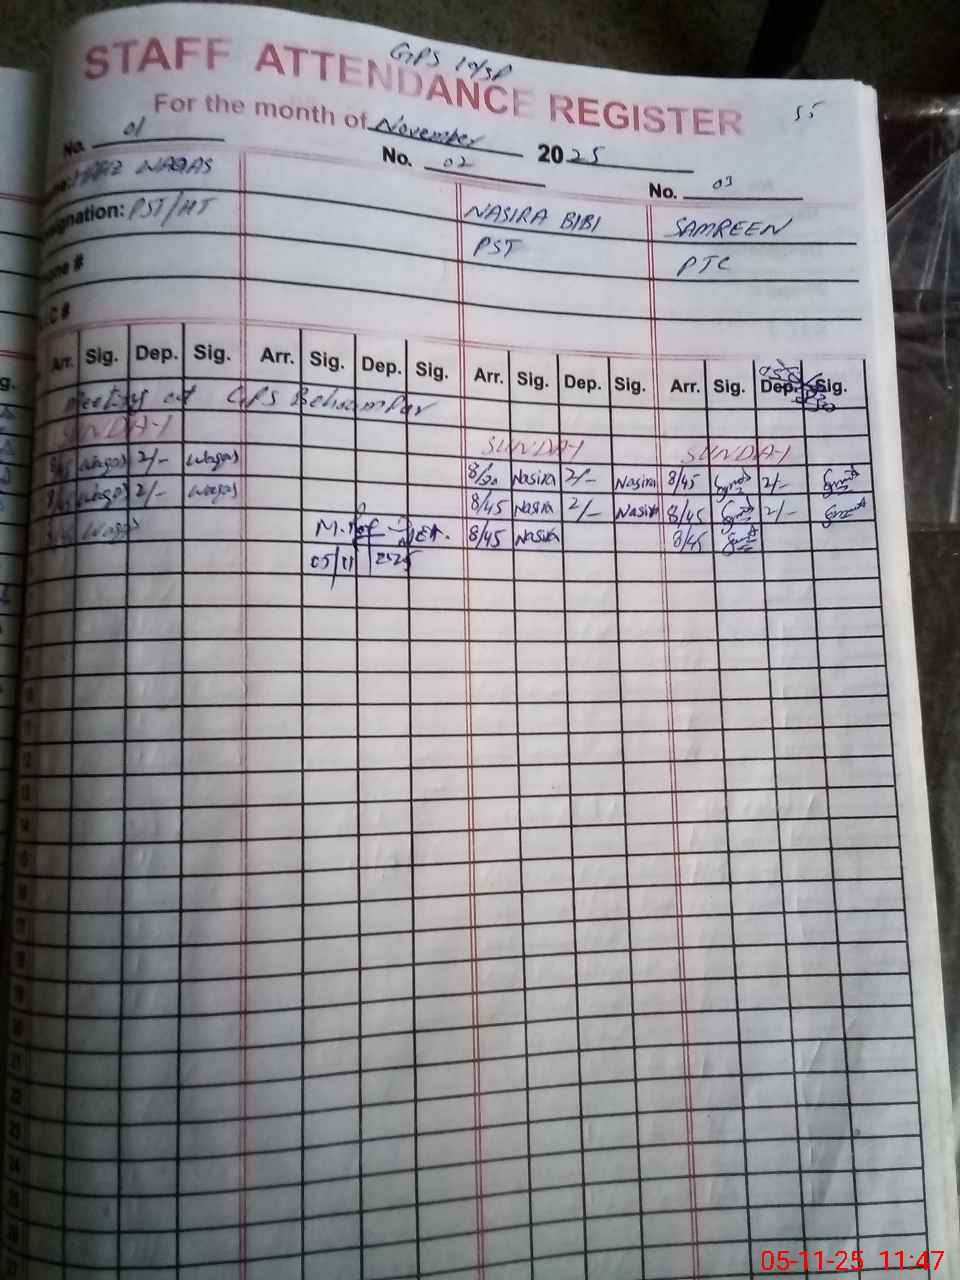 GPS
STAFF ATTENDANCE REGISTER
55
For the month of November 2025
No. 01 No. 02 No. 03
WAQAS NASIRA BIBI SAMREEN
signation: PST/HT PST PTC
one #
C #
Arr. Sig. Dep. Sig. Arr. Sig. Dep. Sig. Arr. Sig. Dep. Sig. Arr. Sig. Dep. Sig.
Meeting at GPS Behrampur
SUNDAY SUNDAY SUNDAY
Waqas 2/- Waqas 8/30 Nasira 2/- Nasira 8/45 2/-
Waqas 2/- Waqas 8/45 Nasira 2/- Nasira 8/45 2/-
Waqas 8/45 Nasira 8/45
05/11 2025
12
13
14
15
16
17
18
19
20
21
22
23
24
25
26
05-11-25 11:47